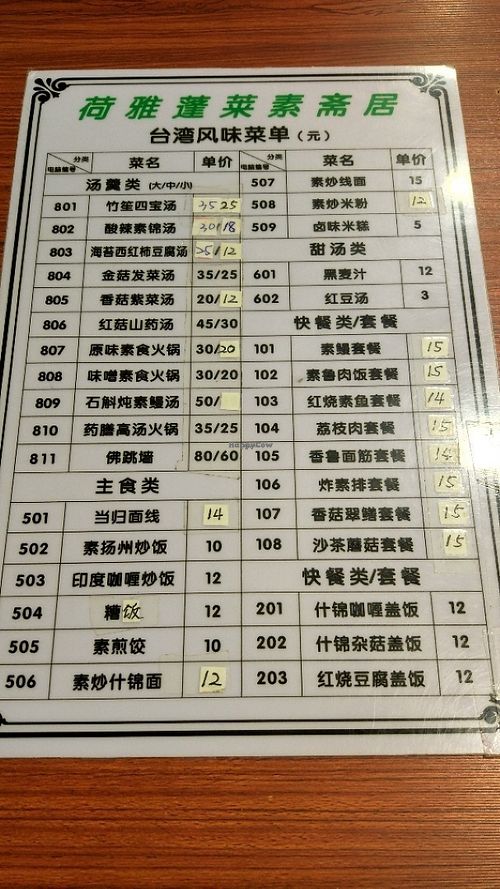 荷雅蓬莱素斋居
台湾风味菜单(元)
分类 电脑编号 菜名 单价
汤羹类 (大/中/小)
801 竹笙四宝汤 35 25
802 酸辣素锦汤 30/18
803 海苔西红柿豆腐汤 25/12
804 金菇发菜汤 35/25
805 香菇紫菜汤 20/12
806 红菇山药汤 45/30
807 原味素食火锅 30/20
808 味噌素食火锅 30/20
809 石斛炖素鳗汤 50/
810 药膳高汤火锅 35/25
811 佛跳墙 80/60
主食类
501 当归面线 14
502 素扬州炒饭 10
503 印度咖喱炒饭 12
504 糟饭 12
505 素煎饺 10
506 素炒什锦面 12
分类 电脑编号 菜名 单价
507 素炒线面 15
508 素炒米粉 12
509 卤味米糕 5
甜汤类
601 黑麦汁 12
602 红豆汤 3
快餐类/套餐
101 素鳗套餐 15
102 素鲁肉饭套餐 15
103 红烧素鱼套餐 14
104 荔枝肉套餐 15
105 香鲁面筋套餐 14
106 炸素排套餐 15
107 香菇翠鳝套餐 15
108 沙茶蘑菇套餐 15
快餐类/套餐
201 什锦咖喱盖饭 12
202 什锦杂菇盖饭 12
203 红烧豆腐盖饭 12
HappyCow